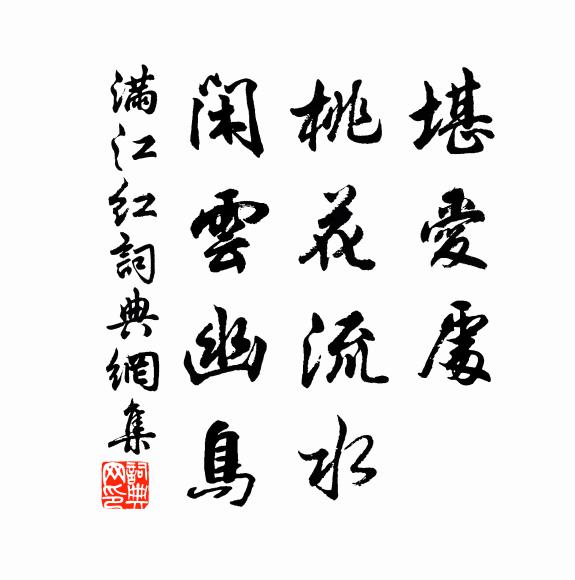 堪愛處
桃花流水
閑雲幽鳥
滿江紅詞典網集
詞典网印